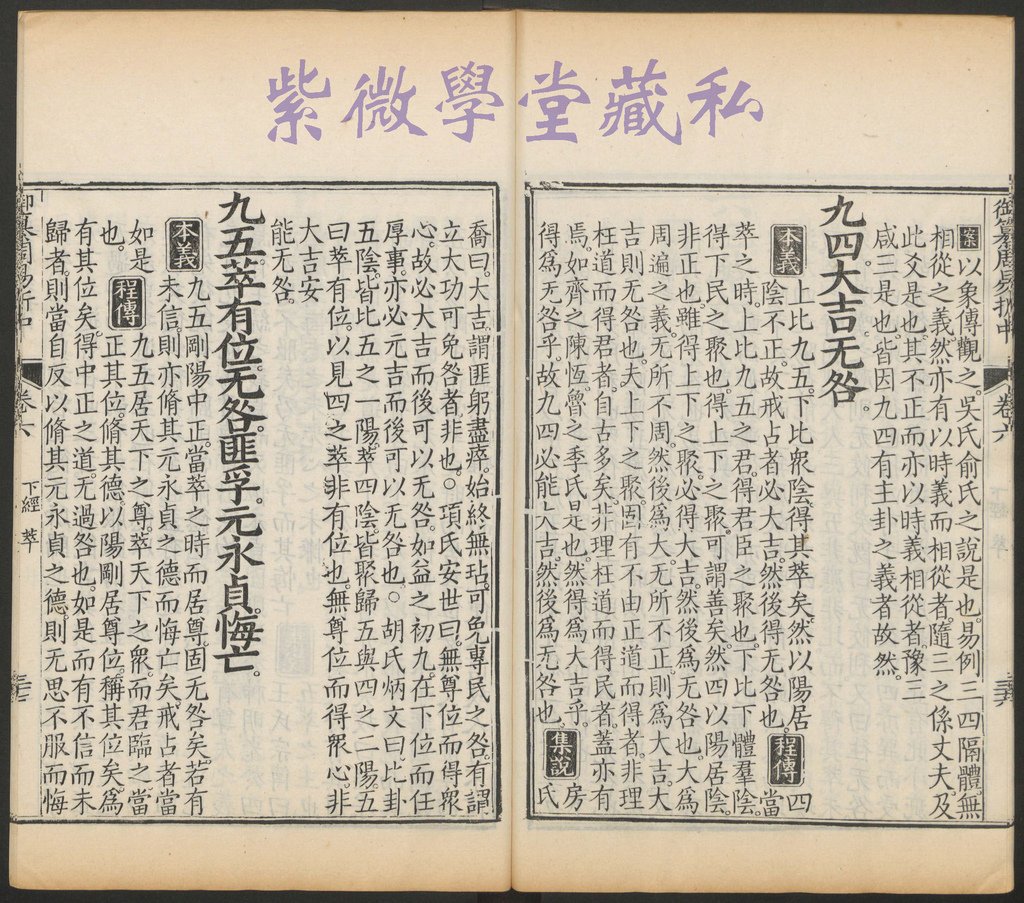 紫微學堂藏私
御纂周易折中 卷六
案以象傳觀之。吳氏俞氏之說是也。易例三四隔體。無
相從之義。然亦有以時義而相從者。隨三之係丈夫及
此爻是也。其不正而亦以時義相從者。豫三
咸三是也。皆因九四有主卦之義者故然。
九四大吉无咎。
本義 上比九五。下比衆陰。得其萃矣。然以陽居
陰不正。故戒占者必大吉。然後得无咎也。 程傳 四當
萃之時。上比九五之君。得君臣之聚也。下比下體羣陰。
得下民之聚也。得上下之聚。可謂善矣。然四以陽居陰。
非正也。雖得上下之聚。必得大吉。然後爲无咎也。大爲
周遍之義。无所不周。然後爲大。无所不正。則爲大吉。大
吉則无咎也。夫上下之聚。固有不由正道而得者。非理
枉道而得君者。自古多矣。非理枉道而得民者。蓋亦有
焉。如齊之陳恆。魯之季氏是也。然得爲大吉乎。
得爲无咎乎。故九四必能大吉。然後爲无咎也。 集說 房氏
喬曰。大吉。謂匪躬盡瘁。始終無玷。可免專民之咎。有謂
立大功可免咎者非也。○項氏安世曰。無尊位而得衆
心。故必大吉而後可以无咎。如益之初九。在下位而任
厚事。亦必元吉而後可以无咎也。○胡氏炳文曰。比卦
五陰。皆比五之一陽。萃四陰皆聚歸五與四之二陽。五
曰萃有位。以見四之萃。非有位也。無尊位而得眾心。非
大吉安
能无咎。
九五萃有位。无咎。匪孚。元永貞。悔亡。
本義 九五剛陽中正。當萃之時而居尊。固无咎矣。若有
未信。則亦脩其元永貞之德而悔亡矣。戒占者當
如是
也。 程傳 九五居天下之尊。萃天下之衆。而君臨之。當
正其位。脩其德。以陽剛居尊位。稱其位矣。爲
有其位矣。得中正之道。无過咎也。如是而有不信而未
歸者。則當自反以脩其元永貞之德。則无思不服而悔
卷六
下經 萃